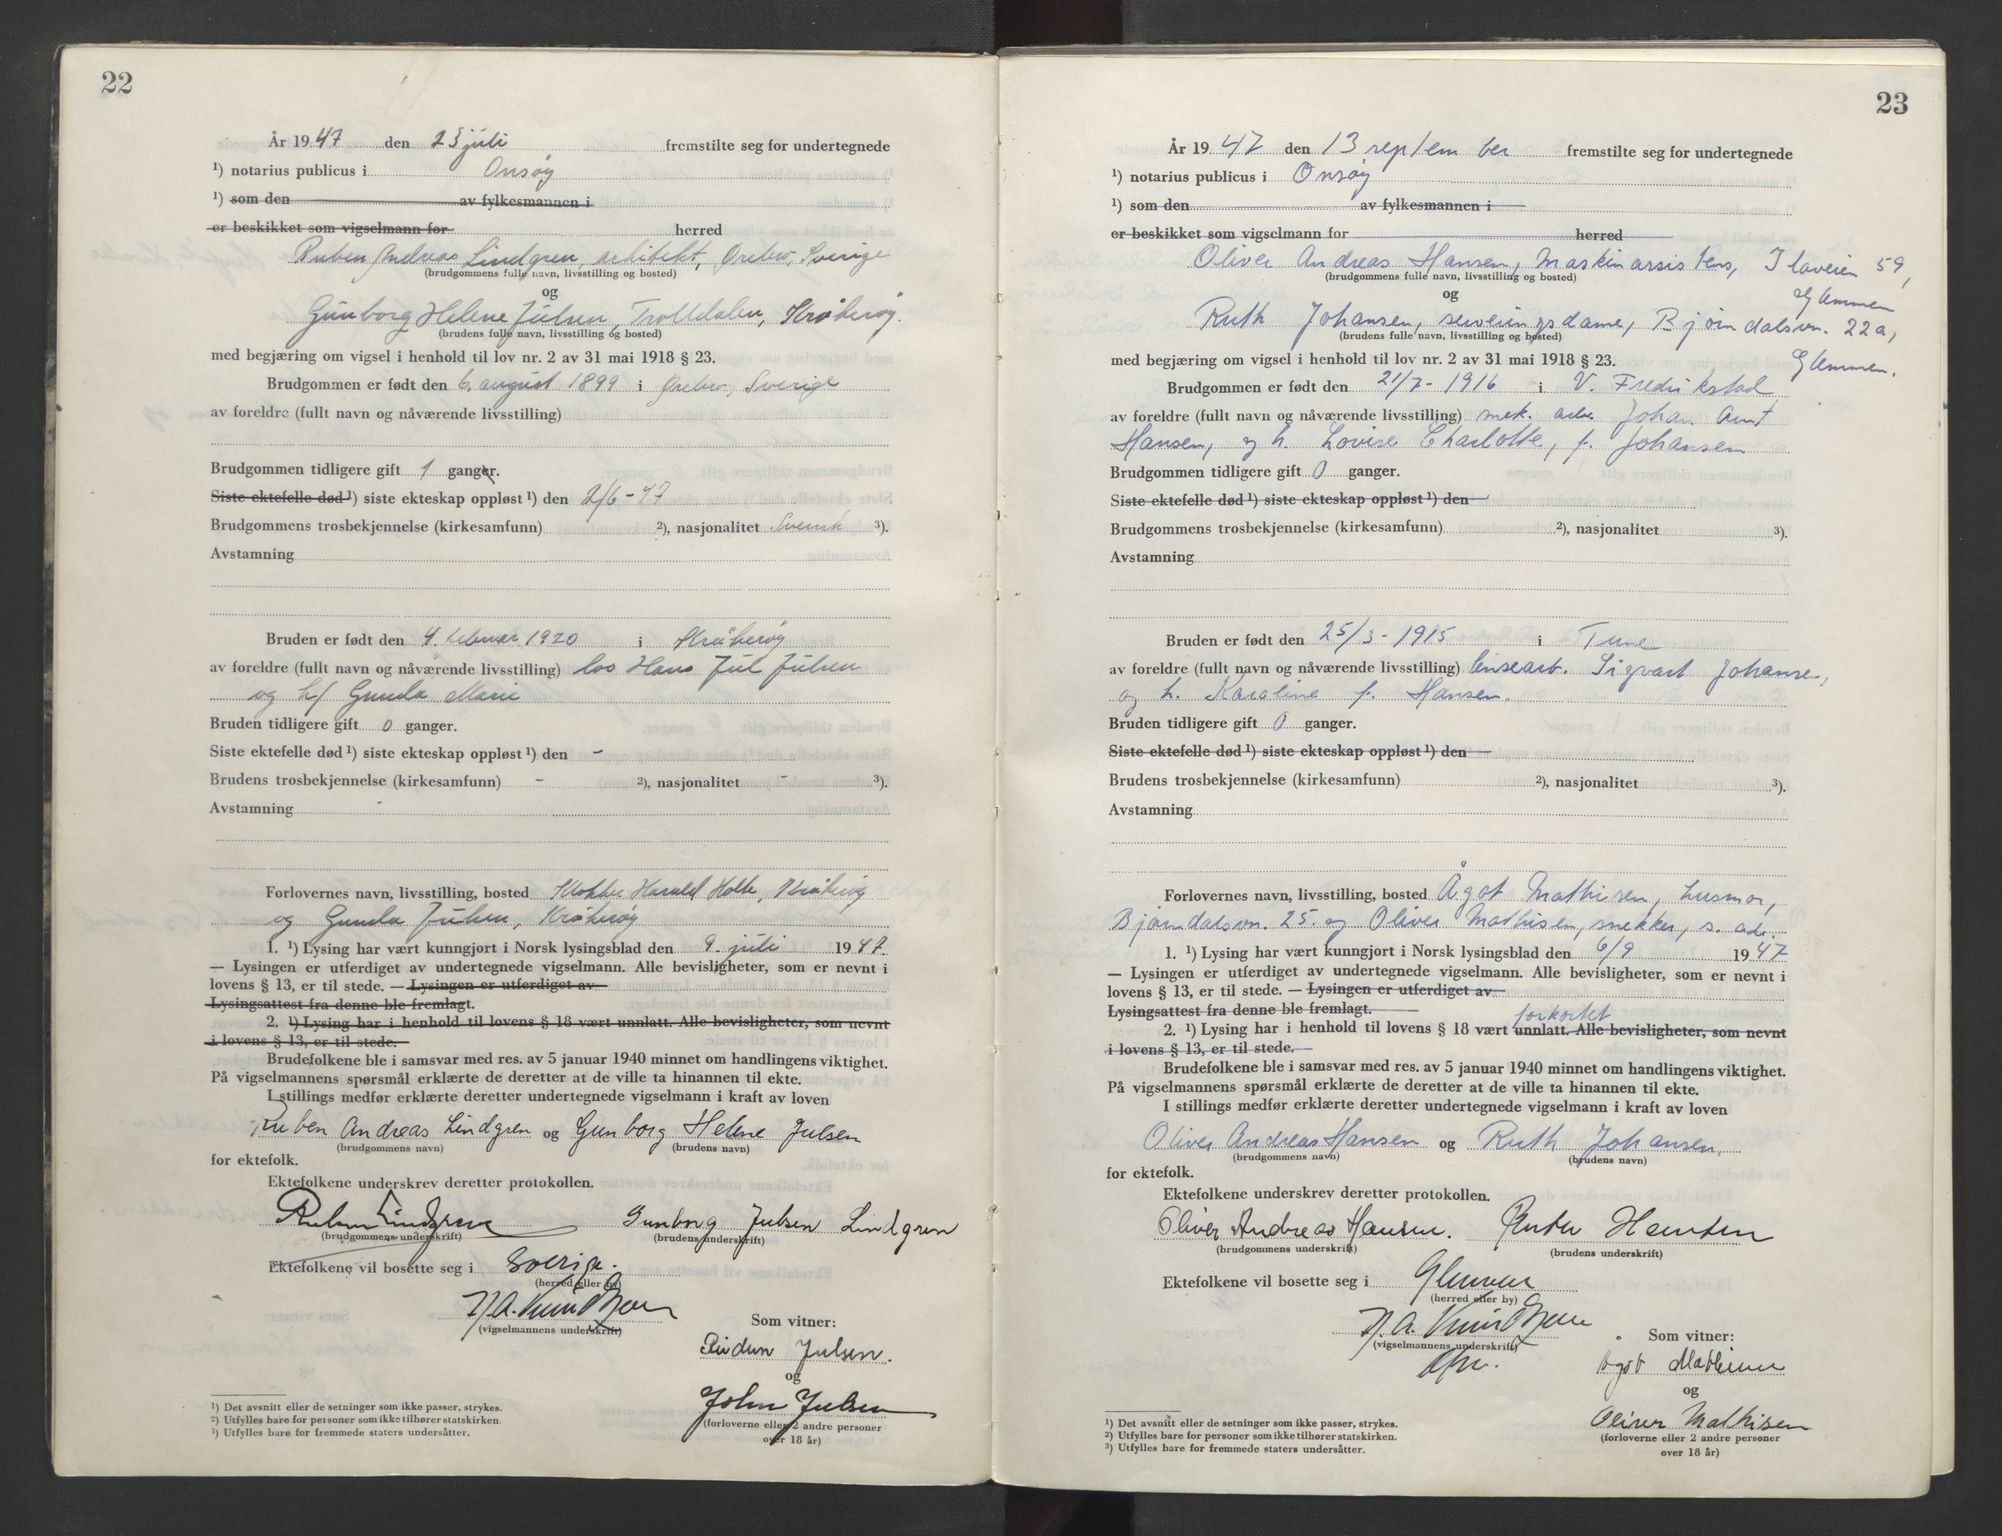 22
År 1947 den 23 juli fremstilte seg for undertegnede
¹) notarius publicus i Onsøy
¹) som den av fylkesmannen i
er beskikket som vigselmann for herred
Ruben Andreas Lindgren, arkitekt, Ørebro, Sverige
(brudgommens fulle navn, livsstilling og bosted)
og
Gunborg Helene Julsen, Trolldalen, Kråkerøy.
(brudens fulle navn, livsstilling og bosted)
med begjæring om vigsel i henhold til lov nr. 2 av 31 mai 1918 § 23.
Brudgommen er født den 6. august 1899 i Ørebro, Sverige
av foreldre (fullt navn og nåværende livsstilling)
Brudgommen tidligere gift 1 ganger.
Siste ektefelle død ¹) siste ekteskap oppløst ¹) den 2/6-47
Brudgommens trosbekjennelse (kirkesamfunn) ²), nasjonalitet Svensk ³).
Avstamning
Bruden er født den 4. februar 1920 i Kråkerøy
av foreldre (fullt navn og nåværende livsstilling) los Hans Jul Julsen
og h/ Gunda Marie
Bruden tidligere gift 0 ganger.
Siste ektefelle død ¹) siste ekteskap oppløst ¹) den -
Brudens trosbekjennelse (kirkesamfunn) - ²), nasjonalitet - ³).
Avstamning
Forlovernes navn, livsstilling, bosted Klokker Harald Holte, Kråkerøy
og Gunda Julsen, Kråkerøy
1. ¹) Lysing har vært kunngjort i Norsk lysingsblad den 9. juli 1947.
— Lysingen er utferdiget av undertegnede vigselmann. Alle bevisligheter, som er nevnt i
lovens § 13, er til stede. — Lysingen er utferdiget av
Lysingsattest fra denne ble fremlagt.
2. ¹) Lysing har i henhold til lovens § 18 vært unnlatt. Alle bevisligheter, som nevnt
i lovens § 13, er til stede.
Brudefolkene ble i samsvar med res. av 5 januar 1940 minnet om handlingens viktighet.
På vigselmannens spørsmål erklærte de deretter at de ville ta hinannen til ekte.
I stillings medfør erklærte deretter undertegnede vigselmann i kraft av loven
Ruben Andreas Lindgren og Gunborg Helene Julsen
(brudgommens navn) (brudens navn)
for ektefolk.
Ektefolkene underskrev deretter protokollen.
Ruben Lindgren Gunborg Julsen Lindgren
(brudgommens underskrift) (brudens underskrift)
Ektefolkene vil bosette seg i Sverige.
(herred eller by)
N. A. Knudtzen
(vigselmannens underskrift)
Som vitner:
Julsen.
og
John Julsen
(forloverne eller 2 andre personer
over 18 år)
¹) Det avsnitt eller de setninger som ikke passer, strykes.
²) Utfylles bare for personer som ikke tilhører statskirken.
³) Utfylles bare for fremmede staters undersåtter.
23
År 1947 den 13 september fremstilte seg for undertegnede
¹) notarius publicus i Onsøy
¹) som den av fylkesmannen i
er beskikket som vigselmann for herred
Oliver Andreas Hansen, maskinassistens, Ilaveien 59,
Glemmen
(brudgommens fulle navn, livsstilling og bosted)
og
Ruth Johansen, serveringsdame, Bjørndalsvn. 22a,
Glemmen.
(brudens fulle navn, livsstilling og bosted)
med begjæring om vigsel i henhold til lov nr. 2 av 31 mai 1918 § 23.
Brudgommen er født den 21/7-1916 i V. Fredrikstad
av foreldre (fullt navn og nåværende livsstilling) mek. arb. Johan Arnt
Hansen, og h. Lovise Charlotte, f. Johansen
Brudgommen tidligere gift 0 ganger.
Siste ektefelle død ¹) siste ekteskap oppløst ¹) den
Brudgommens trosbekjennelse (kirkesamfunn) ²), nasjonalitet ³).
Avstamning
Bruden er født den 25/3-1915 i Tune
av foreldre (fullt navn og nåværende livsstilling) lensearb. Sigvart Johansen,
og h. Karoline f. Hansen.
Bruden tidligere gift 0 ganger.
Siste ektefelle død ¹) siste ekteskap oppløst ¹) den
Brudens trosbekjennelse (kirkesamfunn) ²), nasjonalitet ³).
Avstamning
Forlovernes navn, livsstilling, bosted Ågot Mathisen, husmor,
Bjørndalsvn. 25. og Oliver Mathisen, snekker, s. adr.
1. ¹) Lysing har vært kunngjort i Norsk lysingsblad den 6/9 1947
— Lysingen er utferdiget av undertegnede vigselmann. Alle bevisligheter, som er nevnt i
lovens § 13, er til stede. — Lysingen er utferdiget av
Lysingsattest fra denne ble fremlagt.
forkortet
2. ¹) Lysing har i henhold til lovens § 18 vært unnlatt. Alle bevisligheter, som nevnt
i lovens § 13, er til stede.
Brudefolkene ble i samsvar med res. av 5 januar 1940 minnet om handlingens viktighet.
På vigselmannens spørsmål erklærte de deretter at de ville ta hinannen til ekte.
I stillings medfør erklærte deretter undertegnede vigselmann i kraft av loven
Oliver Andreas Hansen og Ruth Johansen,
(brudgommens navn) (brudens navn)
for ektefolk.
Ektefolkene underskrev deretter protokollen.
Oliver Andreas Hansen. Ruth Hansen
(brudgommens underskrift) (brudens underskrift)
Ektefolkene vil bosette seg i Glemmen
(herred eller by)
N. A. Knudtzen
(vigselmannens underskrift)
Som vitner:
Ågot Mathisen
og
Oliver Mathisen
(forloverne eller 2 andre personer
over 18 år)
¹) Det avsnitt eller de setninger som ikke passer, strykes.
²) Utfylles bare for personer som ikke tilhører statskirken.
³) Utfylles bare for fremmede staters undersåtter.